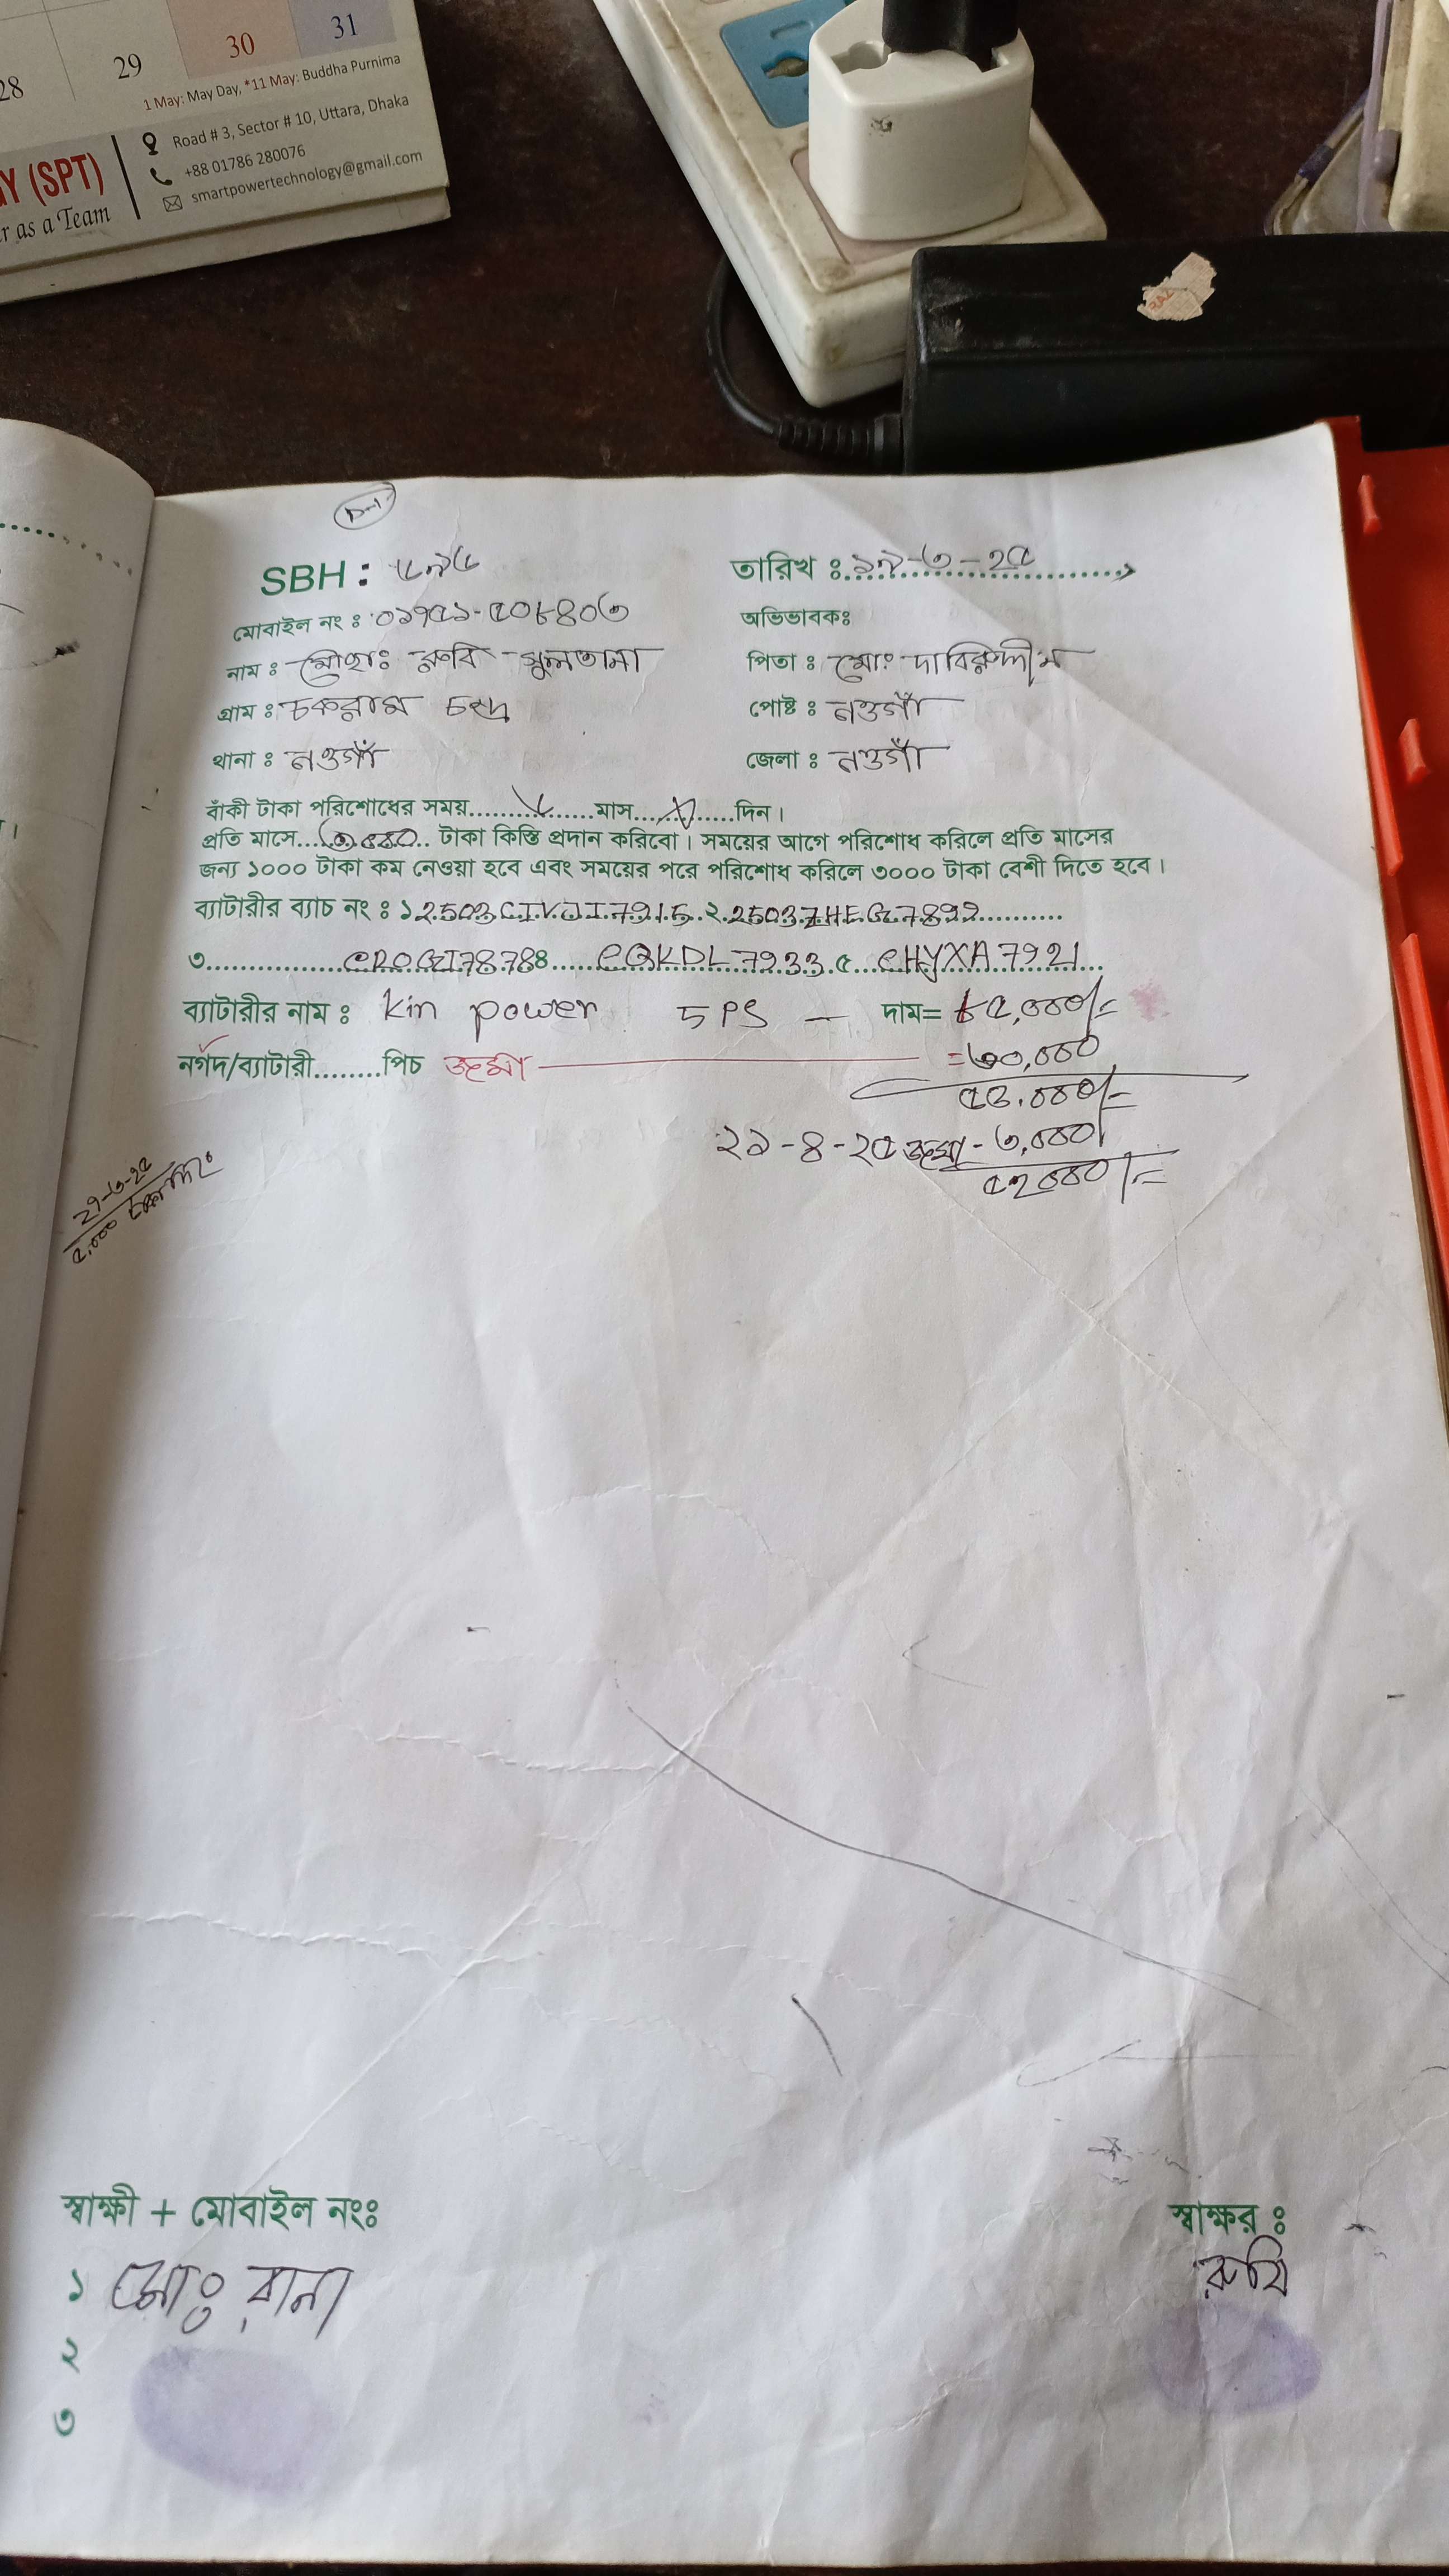 28 29 30 31
1 May: May Day, *11 May: Buddha Purnima
Y (SPT)
r as a Team
Road # 3, Sector # 10, Uttara, Dhaka
+88 01786 280076
smartpowertechnology@gmail.com
SBH : ৬৭৬
তারিখ ঃ ১৯-৩-২৫
মোবাইল নং ঃ ০১৭৫১-৫০৮৪০৩
অভিভাবকঃ
নাম ঃ মোছাঃ রুবি সুলতানা
পিতা ঃ মোঃ দাবিরুদ্দীন
গ্রাম ঃ চকরাম চন্দ্র
পোষ্ট ঃ নওগাঁ
থানা ঃ নওগাঁ
জেলা ঃ নওগাঁ
বাঁকী টাকা পরিশোধের সময়..................মাস............দিন।
প্রতি মাসে.... ৩০০০.. টাকা কিস্তি প্রদান করিবো। সময়ের আগে পরিশোধ করিলে প্রতি মাসের
জন্য ১০০০ টাকা কম নেওয়া হবে এবং সময়ের পরে পরিশোধ করিলে ৩০০০ টাকা বেশী দিতে হবে।
ব্যাটারীর ব্যাচ নং ঃ ১ 2503CIVJI7915 ২ 25037HEGZ7899
৩ CROGI7878 ৪ CQKDL7933 ৫ CHYXA7921
ব্যাটারীর নাম ঃ Kin power 5PS — দাম= ৮৫,০০০/=
নগদ/ব্যাটারী........পিচ জমা = ৩০,০০০
৫৫,০০০/=
২১-৪-২৫ জমা - ৩,০০০/
৫২০০০/=
২৭-৩-২৫
৫,০০০
স্বাক্ষী + মোবাইল নংঃ
স্বাক্ষর ঃ
১ মোঃ রানা
রুবি
২
৩